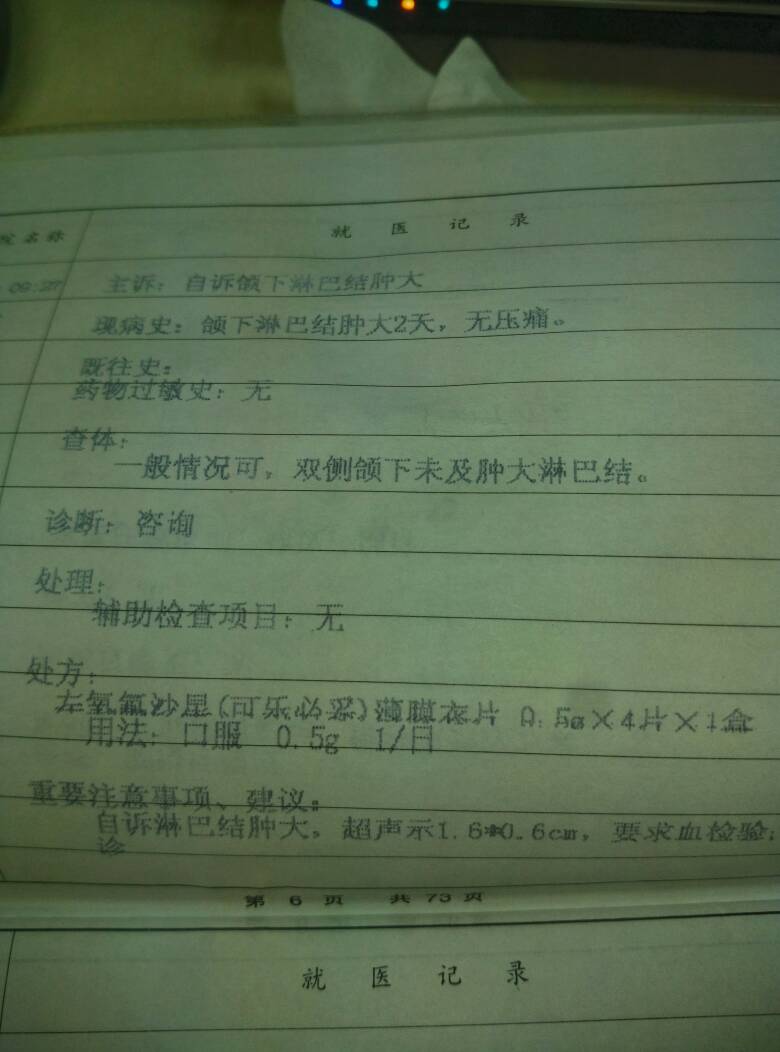 名称 就医记录
09:27 主诉：自诉颌下淋巴结肿大
现病史：颌下淋巴结肿大2天，无压痛。
既往史：
药物过敏史：无
查体：
一般情况可，双侧颌下未及肿大淋巴结。
诊断：咨询
处理：
辅助检查项目：无
处方：
左氧氟沙星(可乐必妥)薄膜衣片 0.5g×4片×1盒
用法：口服 0.5g 1/日
重要注意事项、建议：
自诉淋巴结肿大，超声示1.6*0.6cm，要求血检验；
诊
第 6 页 共 73 页
就医记录